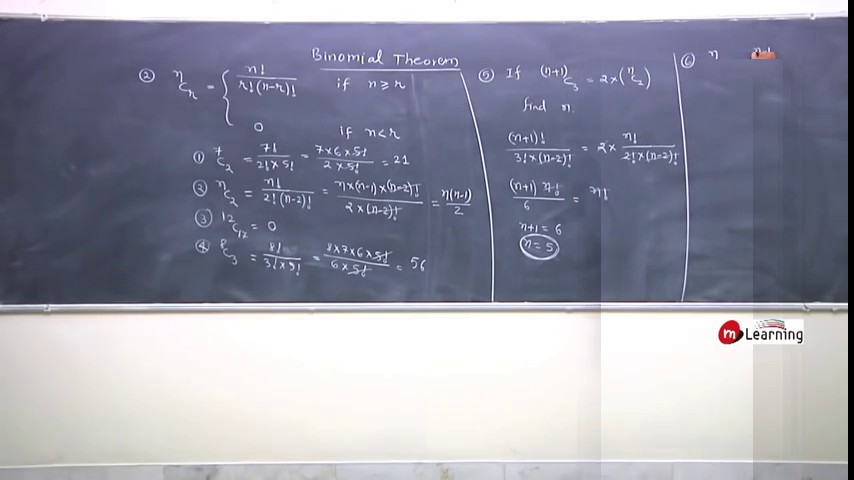 Binomial Theorem
② ⁿCᵣ = { n! / r!(n-r)! if n ≥ r
0 if n < r
① ⁷C₂ = 7! / 2! × 5! = 7×6×5! / 2×5! = 21
② ⁿC₂ = n! / 2!(n-2)! = n×(n-1)×(n-2)! / 2×(n-2)! = n(n-1) / 2
③ ¹²C₁₇ = 0
④ ⁸C₃ = 8! / 3!×5! = 8×7×6×5! / 6×5! = 56
⑤ If ⁽ⁿ⁺¹⁾C₃ = 2×(ⁿC₂)
find n.
(n+1)! / 3!×(n-2)! = 2× n! / 2!×(n-2)!
(n+1) n! / 6 = n!
n+1 = 6
n = 5
⑥ n n-1
m Learning